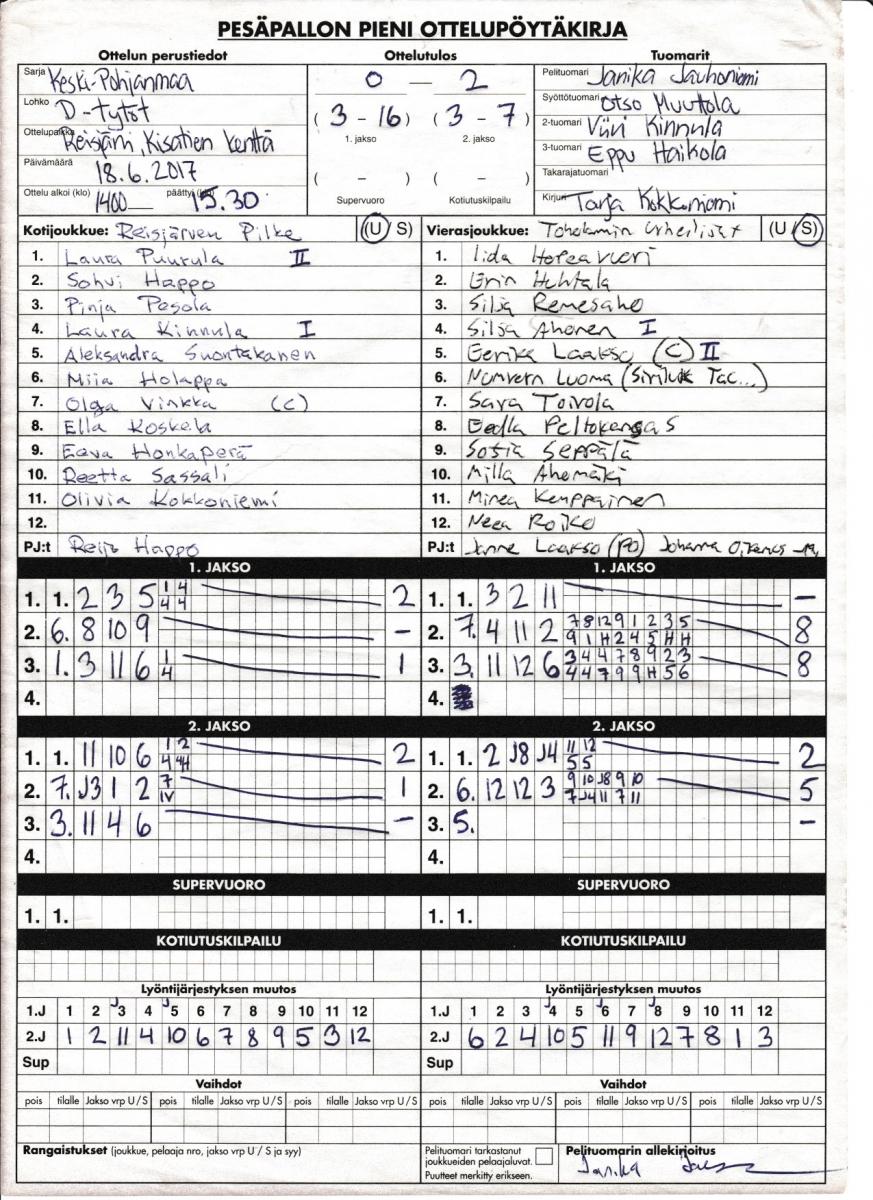 PESÄPALLON PIENI OTTELUPÖYTÄKIRJA
Ottelun perustiedot Ottelutulos Tuomarit
Sarja Keski-Pohjanmaa
Lohko D-tytöt
Ottelupaikka Reisjärvi, Kisatien kenttä
Päivämäärä 18.6.2017
Ottelu alkoi (klo) 1400 päättyi (klo) 15.30
0 – 2
(3 - 16) (3 - 7)
1. jakso 2. jakso
( – ) ( – )
Supervuoro Kotiutuskilpailu
Pelituomari Janika Jauhoniemi
Syöttötuomari Otso Muuttola
2-tuomari Viivi Kinnula
3-tuomari Eppu Haikola
Takarajatuomari
Kirjuri Tarja Kokkoniemi
Kotijoukkue: Reisjärven Pilke (U/S)
1. Laura Puurula II
2. Sohvi Happo
3. Pinja Pesola
4. Laura Kinnula I
5. Aleksandra Suontakanen
6. Miia Holappa
7. Olga Vinkka (C)
8. Ella Koskela
9. Eeva Honkaperä
10. Reetta Sassali
11. Olivia Kokkoniemi
12.
PJ:t Reijo Happo
Vierasjoukkue: Toholammin Urheilijat (U/S)
1. Iida Hopeavuori
2. Erin Huhtala
3. Silja Remesaho
4. Silja Ahonen I
5. Eerika Laakso (C) II
6. Luoma
7. Sara Toivola
8. Eedla Peltokangas
9. Sofia Seppälä
10. Milla Ahemäki
11. Minea Kemppainen
12. Neea Roiko
PJ:t Janne Laakso (PO) Johanna
1. JAKSO
1. 1. 2 3 5 1 4 2
4 4
2. 6. 8 10 9 –
3. 1. 3 11 6 1 1
4
4.
1. JAKSO
1. 1. 3 2 11 –
2. 7. 4 11 2 7 8 12 9 1 2 3 5 8
9 1 H 2 4 5 H H
3. 3. 11 12 6 3 4 4 7 8 9 2 3 8
4 4 7 9 9 H 5 6
4.
2. JAKSO
1. 1. 11 10 6 1 2 2
4 4H
2. 7. J3 1 2 7 1
IV
3. 3. 11 4 6 –
4.
2. JAKSO
1. 1. 2 J8 J4 11 12 2
5 5
2. 6. 12 12 3 9 10 J8 9 10 5
7 J4 11 7 11
3. 5. –
4.
SUPERVUORO SUPERVUORO
1. 1. 1. 1.
KOTIUTUSKILPAILU KOTIUTUSKILPAILU
Lyöntijärjestyksen muutos
1.J 1 2 J3 4 J5 6 7 8 9 10 11 12
2.J 1 2 11 4 10 6 7 8 9 5 3 12
Sup
Lyöntijärjestyksen muutos
1.J 1 2 3 J4 5 J6 7 J8 9 10 11 12
2.J 6 2 4 10 5 11 9 12 7 8 1 3
Sup
Vaihdot Vaihdot
pois tilalle Jakso vrp U/S pois tilalle Jakso vrp U/S pois tilalle Jakso vrp U/S
pois tilalle Jakso vrp U/S pois tilalle Jakso vrp U/S pois tilalle Jakso vrp U/S
Rangaistukset (joukkue, pelaaja nro, jakso vrp U/S ja syy)
Pelituomari tarkastanut
joukkueiden pelaajaluvat.
Puutteet merkitty erikseen.
Pelituomarin allekirjoitus
Janika